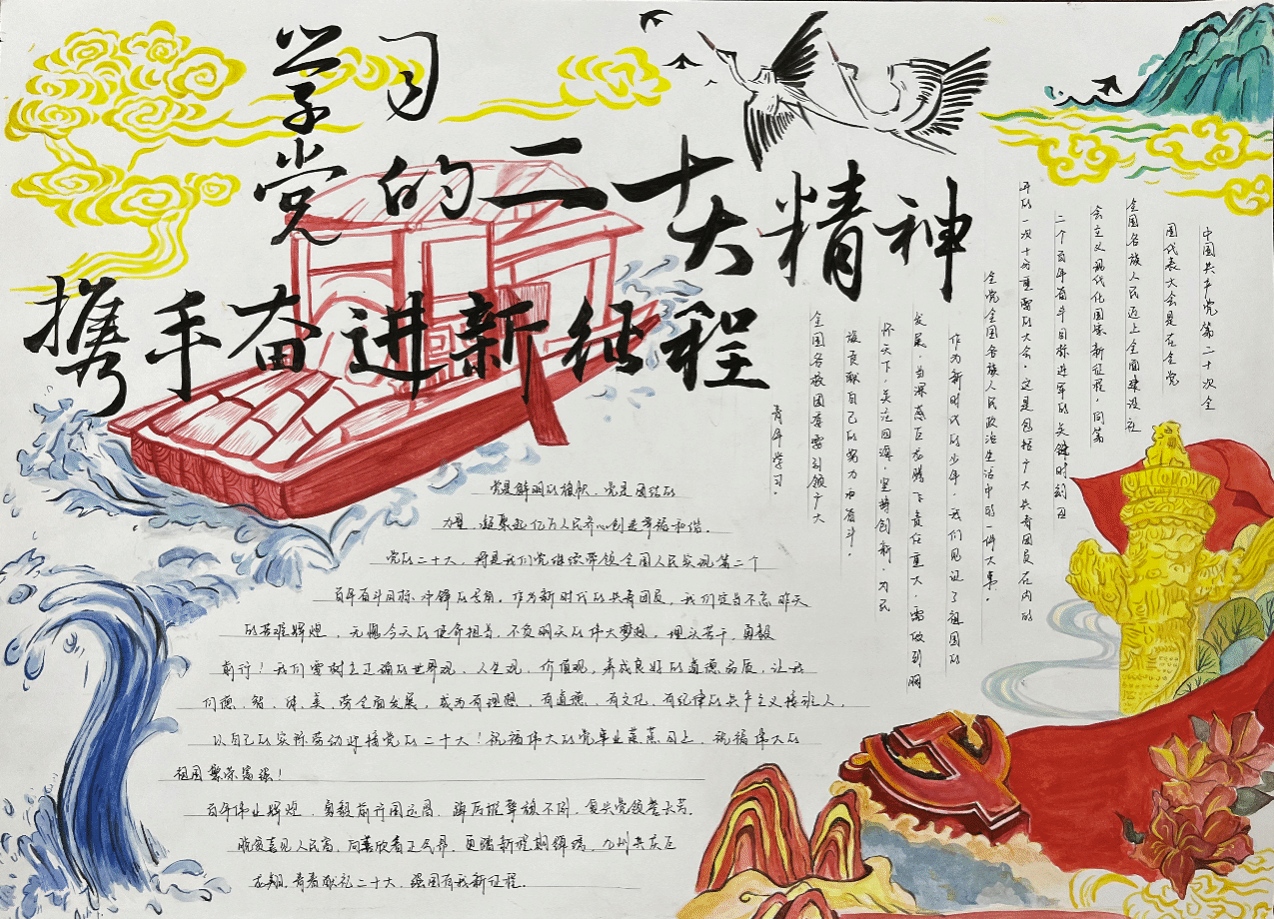 学习
党的二十大精神
携手奋进新征程
中国共产党第二十次全
国代表大会是在全党
全国各族人民迈上全面建设社
会主义现代化国家新征程，向第
二个百年奋斗目标进军的关键时刻召
开的一次十分重要的大会。这是包括广大共青团员在内的
全党全国各族人民政治生活中的一件大事。
作为新时代的少年，我们见证了祖国的
发展，当深感巨龙腾飞责任重大，需做到胸
怀天下，关注四海，坚持创新，为民
族贡献自己的努力和奋斗。
全国各族团委要引领广大
青年学习。
党是鲜明的旗帜，党是团结的
力量，凝聚起亿万人民齐心创造幸福和谐。
党的二十大，将是我们党继续带领全国人民实现第二个
百年奋斗目标冲锋的号角。作为新时代的共青团员，我们定当不忘昨天
的苦难辉煌，无愧今天的使命担当，不负明天的伟大梦想，埋头苦干，勇毅
前行！我们要树立正确的世界观，人生观，价值观，养成良好的道德品质，让我
们德，智，体，美，劳全面发展，成为有理想，有道德，有文化，有纪律的共产主义接班人，
以自己的实际劳动迎接党的二十大！祝福伟大的党事业蒸蒸日上，祝福伟大的
祖国繁荣富强！
百年伟业辉煌，勇毅前行图远图，踔厉
旗不同，复兴党领誉长
喜见人民富，向善欣看正气昂，更
新程期锦绣，九州共庆巨
龙翔，青春献礼二十大，强国有我新征程。